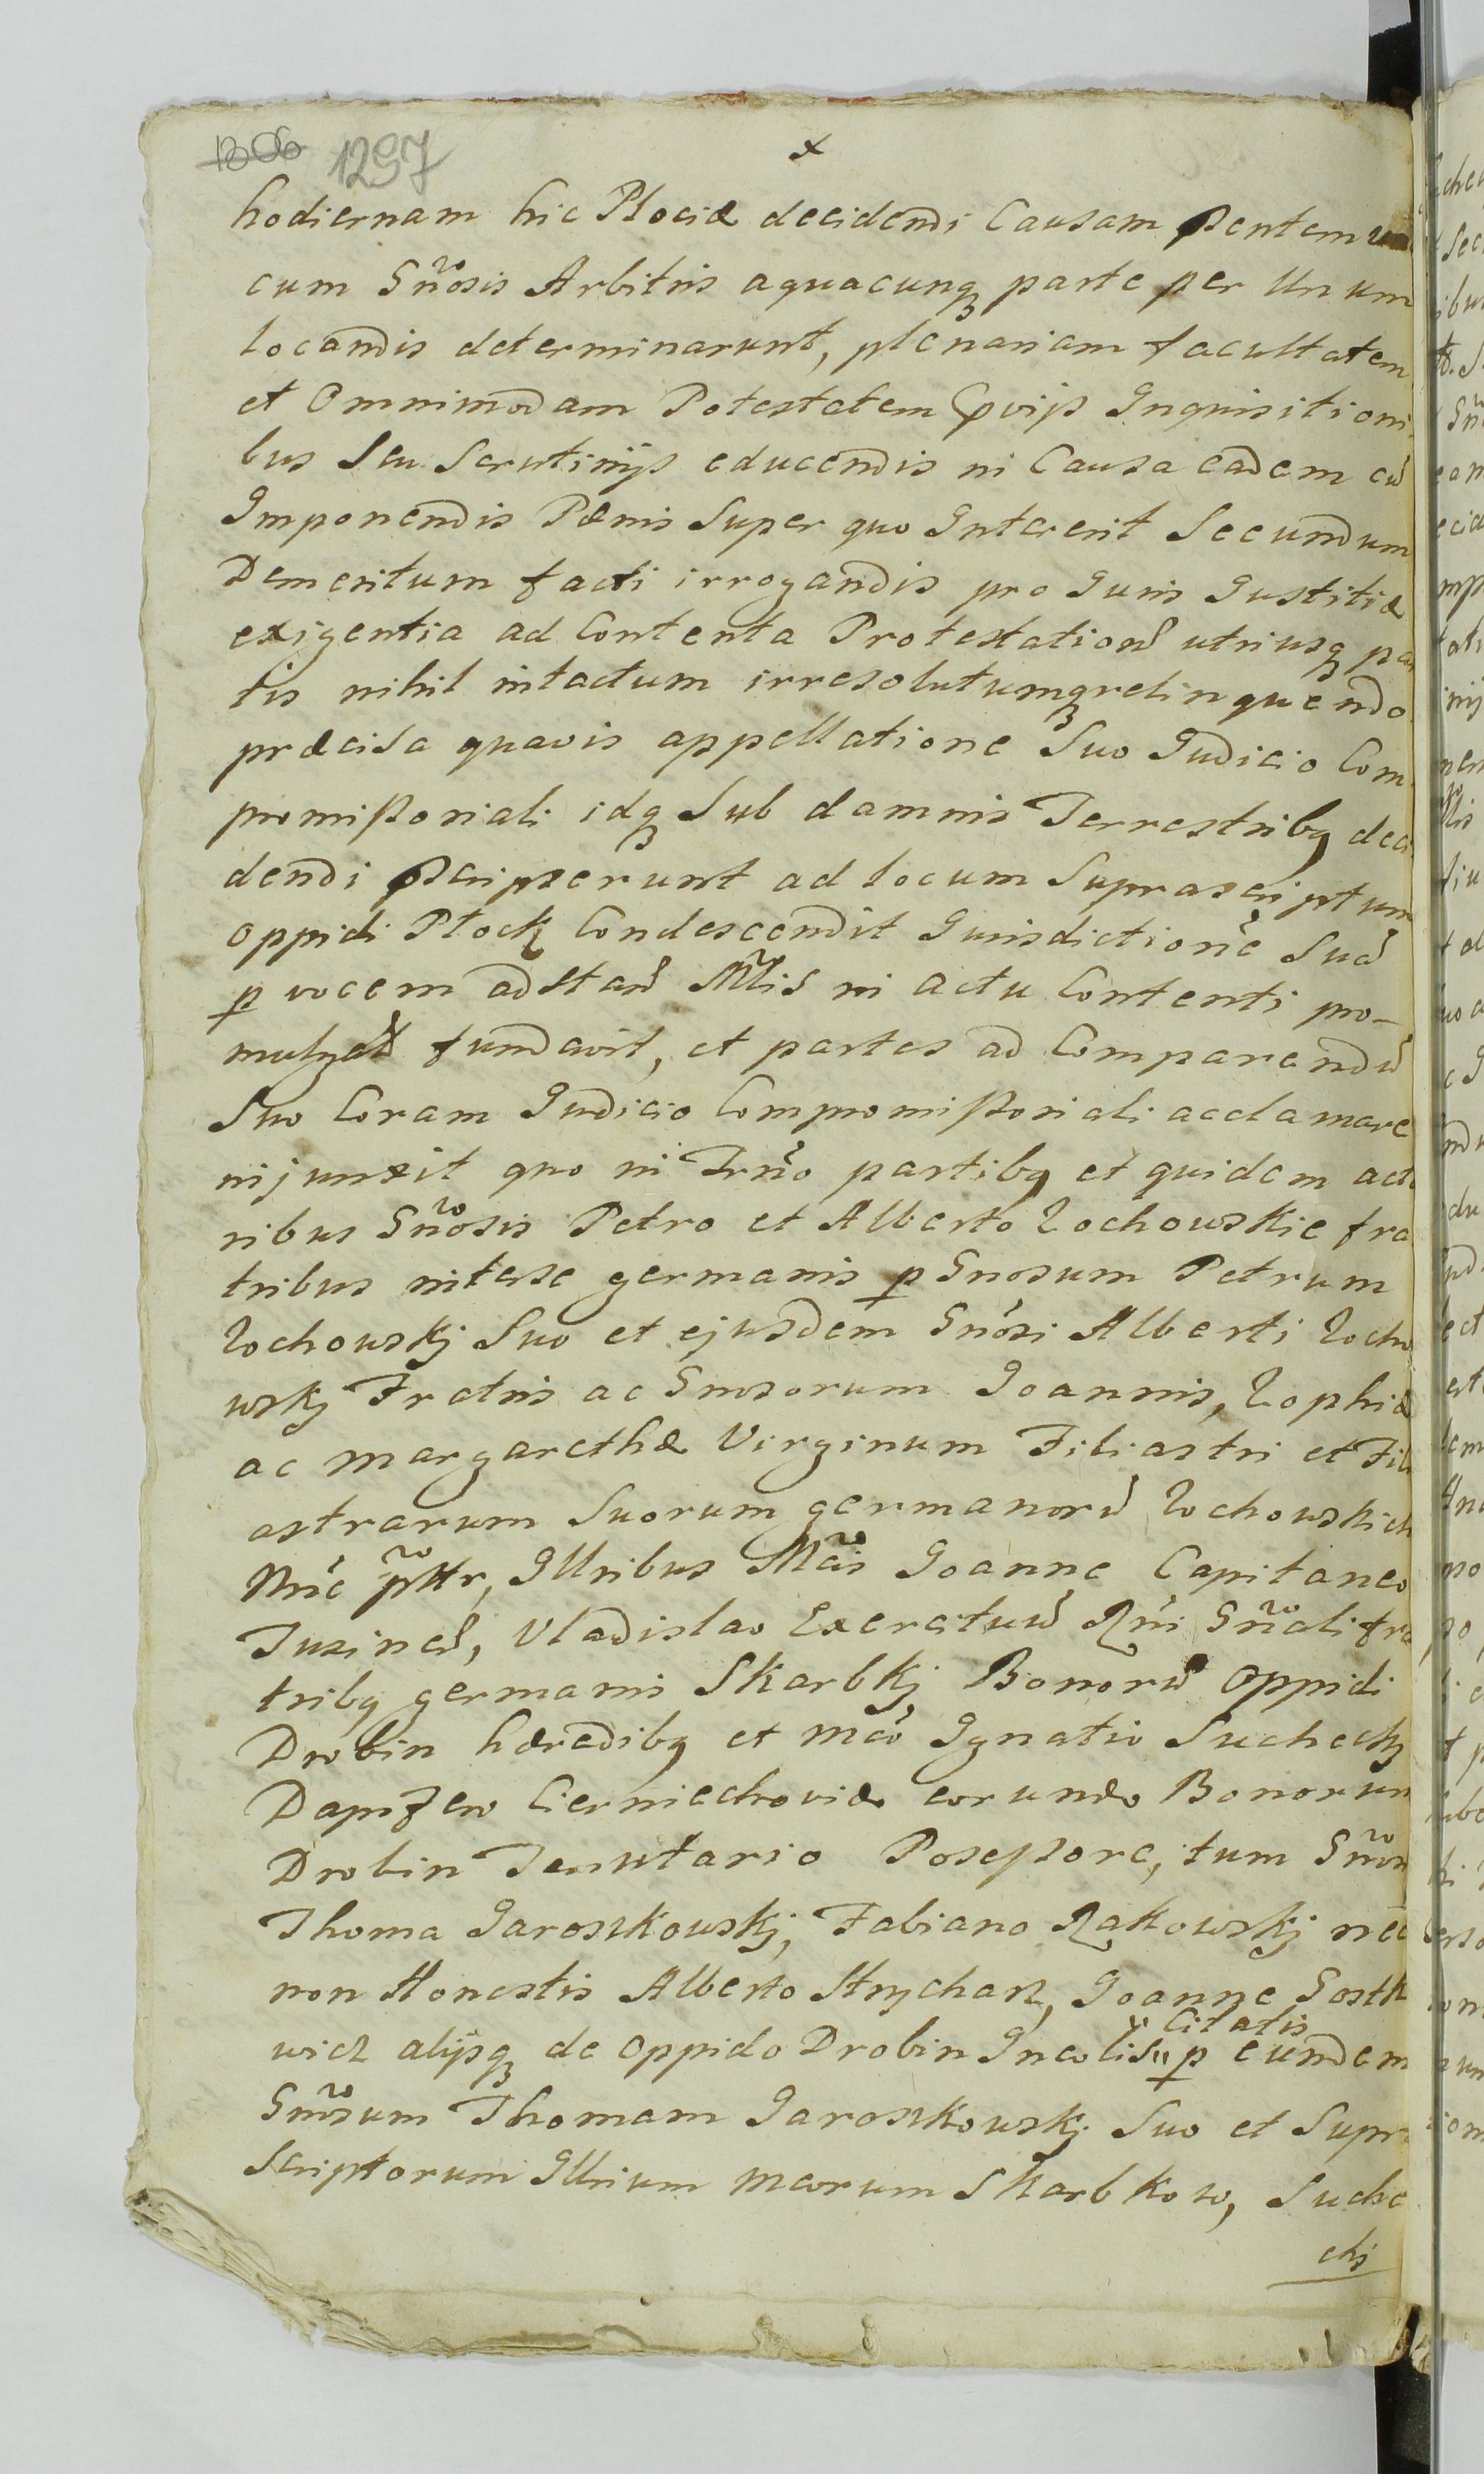 1306 1297
x
hodiernam hic Plociæ decidendi Causam pñtem
cum Gñosis Arbitris aquacunq parte per Unum
locandis determinarunt, plenariam facultatem
et Omnimodam Potestatem Qvijs Inquisitioni
bus Seu Scrutinijs educendis in Causa eadem cũ
Imponendis Pænis Super quo Intererit Secundum
Demeritum facti irrogandis pro Juris Justitiæ
exigentia ad Contenta Protestationũ utriusq par
tis nihil intactum irresolutumq relinquendo
præcisa quavis appellatione Suo Judicio Com
promissoriali idq Sub damnis Terrestribq deci
dendi pscripserunt ad locum Suprascriptum
Oppidi Plock Condescendit Jurisdictionẽ Suã
p vocem adstan Mlis in actu Contenti pro-
mulgat fundavit, et partes ad Comparendũ
Suo Coram Judicio Compromissoriali acclamare
injunxit quo in Trño partibq et quidem acto
ribus Gñosis Petro et Alberto Zochowskie fra
tribus interse germanis p Gnosum Petrum
Zochowskj Suo et ejusdem Gnosi Alberti Zocho
wskj Fratris ac Gnosorum Joannis, Zophiæ
ac Margarethæ Virginum Filiastri et Fili
astrarum Suorum germanorũ Zochowskich
Nñe pttr, Illribus Mcis Joanne Capitaneo
Tuzineñ, Vladislao Exercituũ Rñi Gñali fra
tribq germanis Skarbkj Bonorũ Oppidi
Drobin hæredibq et Mco Ignatio Suchecky
Dapifero Czerniechoviæ eorundo Bonorum
Drobin Tenutario Posessore, tum Gnoso
Thoma Jaroszkowskj, Fabiano Rakowskj nec
non Honestis Alberto Strycharz, Joanne Gostk
wicz alijsq de Oppido Drobin Incolis " Citatis " p eundem
Gnosum Thomam Jaroszkowskj Suo et Supra
Scriptorum Illrium Mcorum Skarbkow, Suche
chj